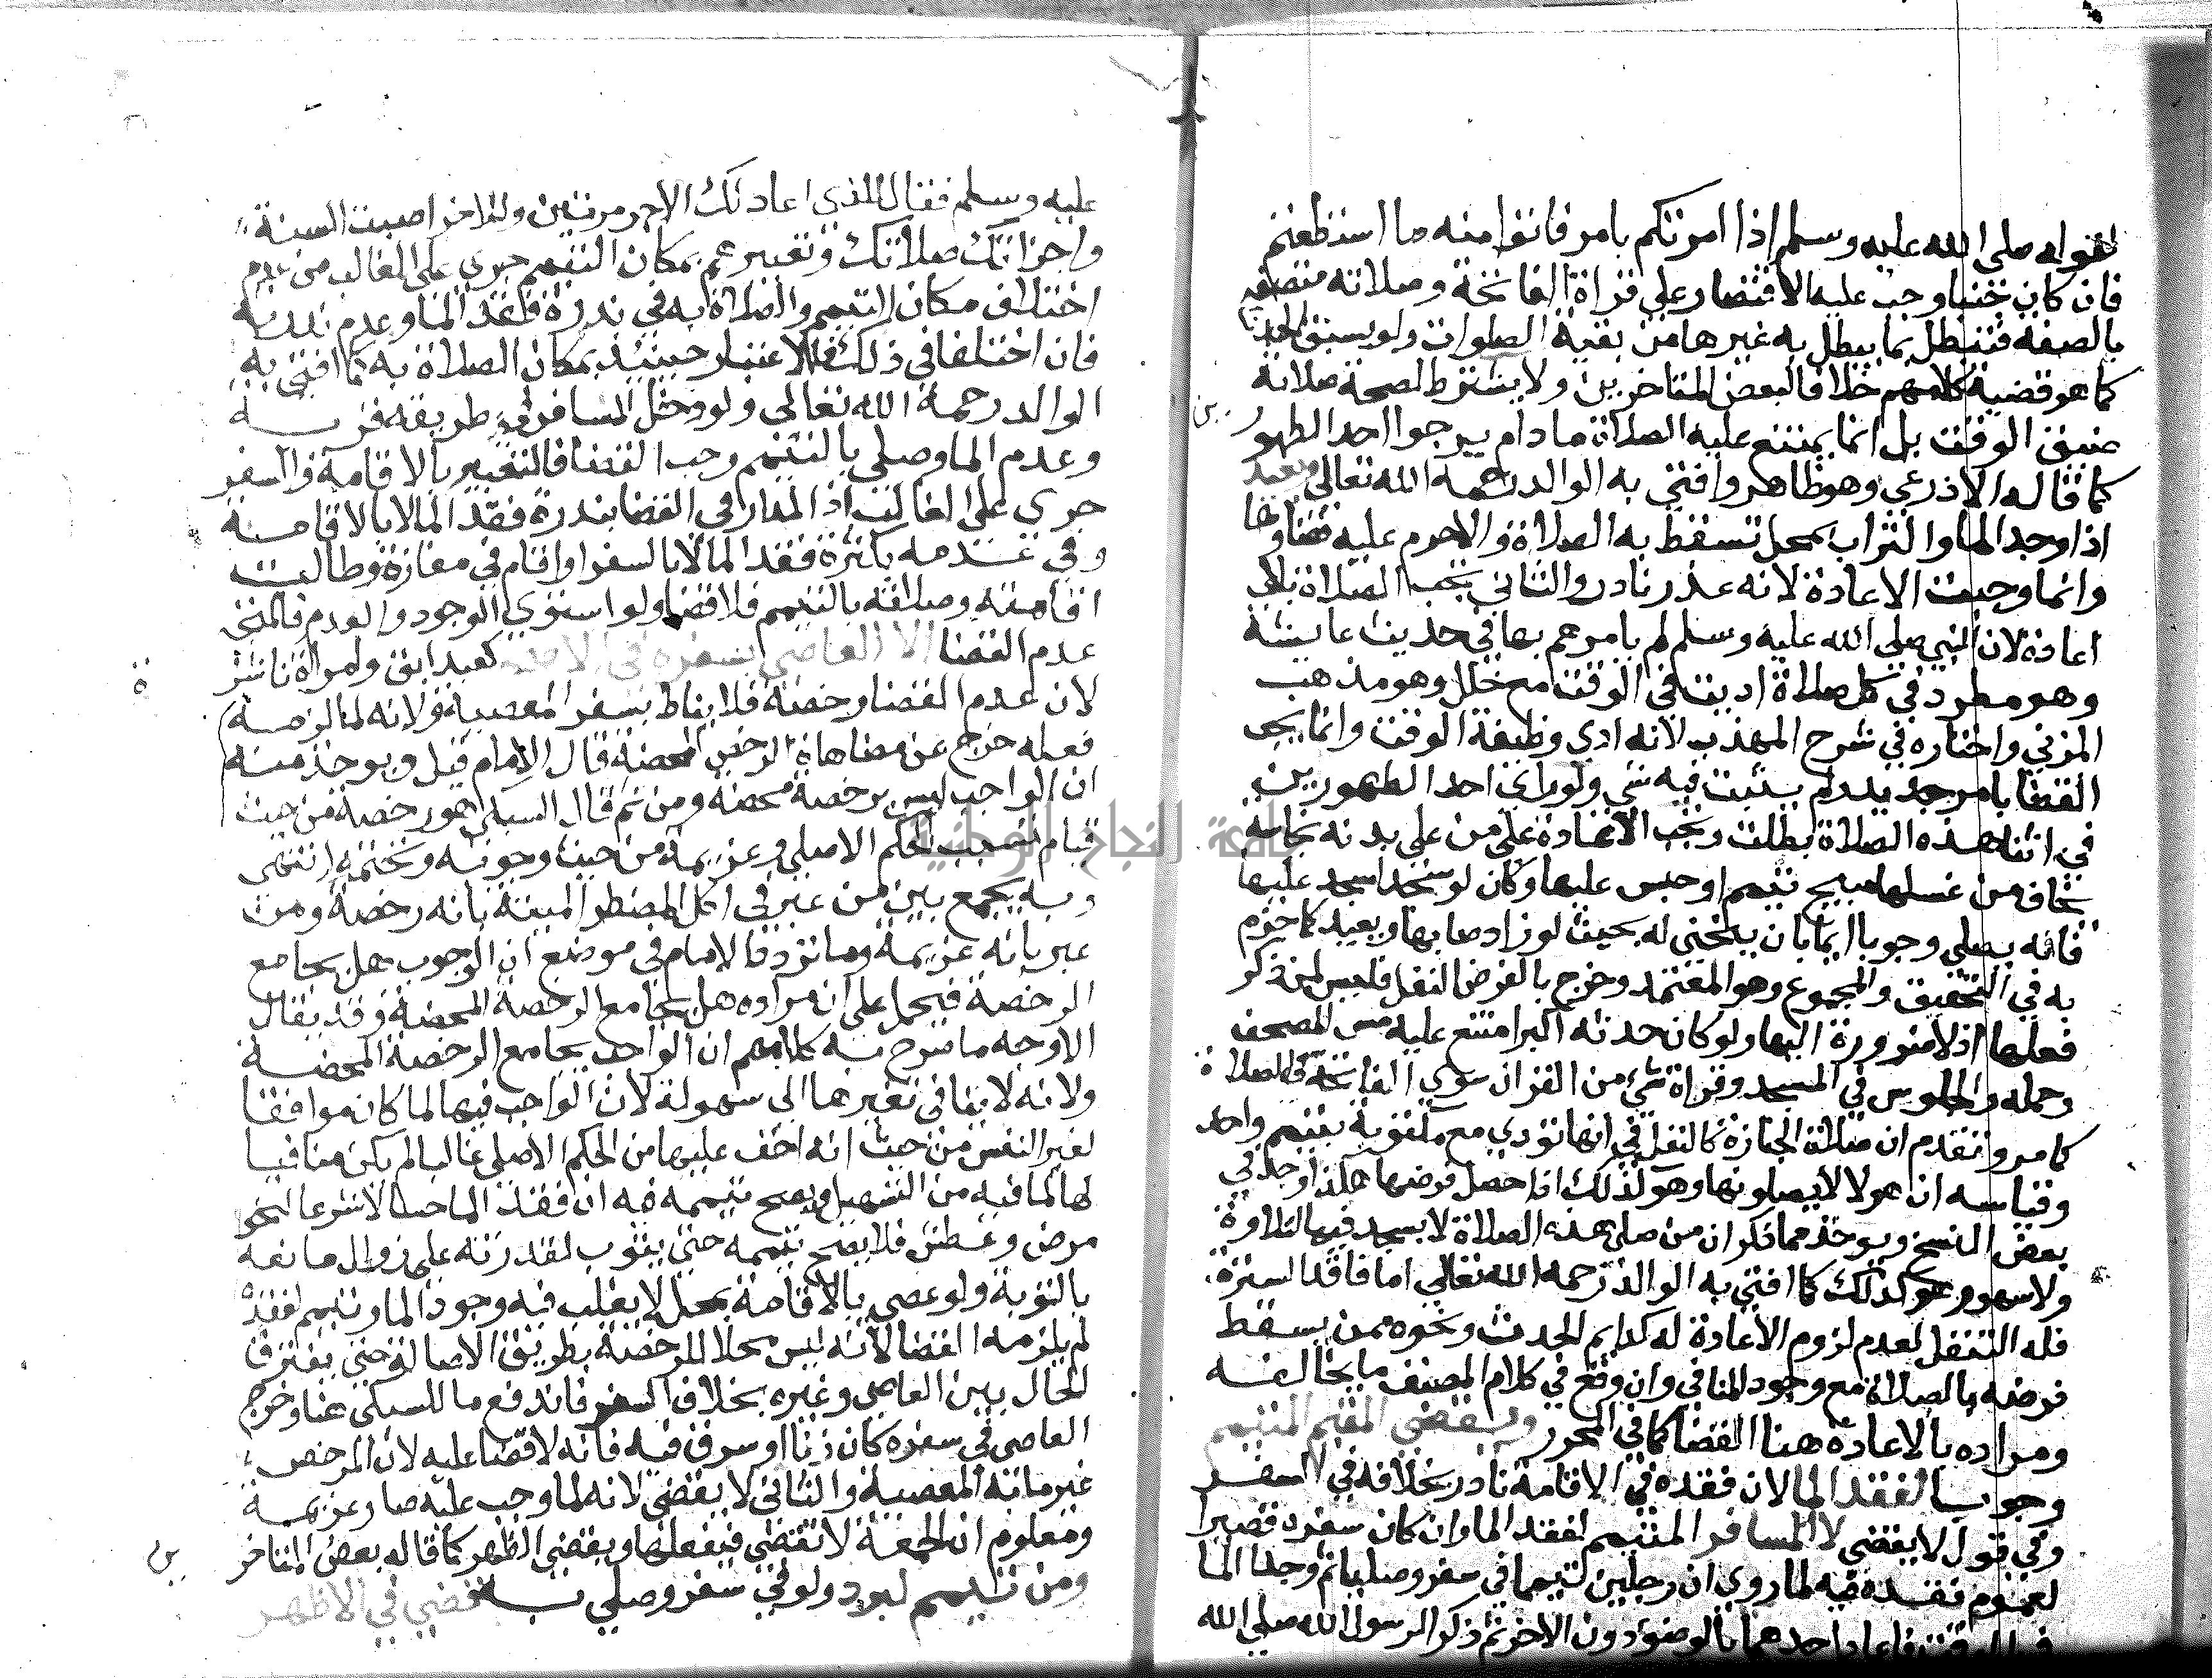 لقوله صلى الله عليه وسلم اذا امرتكم بامر فاتوا منه ما استطعتم
فان كان جنبا وجب عليه الاقتصار على قراة الفاتحة وصلاته متصفة
بالصفة فتبطل بما يبطل به غيرها من بقية الصلوات ولو بسبق الحدث
كما هو قضية كلامهم خلافا لبعض المتاخرين ولا يشترط لصحة صلاته
ضيق الوقت بل انما يمتنع عليه الصلاة ما دام يرجوا احد الطهور
كما قاله الاذرعي وهو ظاهر وافتى به الوالد رحمه الله تعالى ويعيد
اذا وجد الما والتراب بمحل تسقط به الصلاة والاحرم عليه قضاوها
وانما وجبت الاعادة لانه عذر نادر والثاني يجب الصلاة بلا
اعادة لان النبي صلى الله عليه وسلم لم يامرهم بها في حديث عايشة
وهو مطرد في كل صلاة اديت في الوقت مع خلل وهو مذهب
المزني واختاره في شرح المهذب لانه ادي وظيفة الوقت وانما يجب
القضا بامر جديد ولم يثبت فيه شي ولو راي احد الطهورين
في اثنا هذه الصلاة بطلت ويجب الاعادة على من على بدنه نجاسة
يخاف من غسلها مبيح تيمم او حبس عليها وكان لو سجد لسجد عليها
فانه يصلي وجوبا ايما بان ينحني له بحيث لو زاد صابها ويعيد كما جزم
به في التحقيق والمجموع وهو المعتمد وخرج بالفرض النفل فليس لمن ذكر
فعلها اذ لا ضرورة اليها ولو كان حدثه اكبر امتنع عليه مس المصحف
وحمله والجلوس في المسجد وقراة شي من القران سوي الفاتحة في الصلاة
كما مر وتقدم ان صلاة الجنازة كالنفل في انها تودي مع مكتوبة بتيمم واحد
وقياسه ان هولا لا يصلونها وهو كذلك اذا حصل فرضها هكذا وجد في
بعض النسخ ويوخذ مما ذكر ان من صلى هذه الصلاة لا يسجد فيها لتلاوة
ولا سهو وهو كذلك كما افتى به الوالد رحمه الله تعالى اما فاقد السترة
فله التنفل لعدم لزوم الاعادة له كدايم الحدث ونحوه ممن يسقط
فرضه بالصلاة مع وجود المنافي وان وقع في كلام المصنف ما يخالفه
ومراده بالاعادة هنا القضا كما في المحرر ويقضي المقيم المتيمم
وجوبا لفقد الما لان فقده في الاقامة نادر بخلافه في السفر
وفي قول لا يقضي لا المسافر المتيمم لفقد الما وان كان سفره قصيرا
لعموم فقده فيه لما روي ان رجلين تيمما في سفر وصليا ثم وجدا الما
في الوقت فاعاد احدهما بالوضوء دون الاخر ثم ذكرا لرسول الله صلى الله
عليه وسلم فقال للذي اعاد لك الاجر مرتين وللاخر اصبت السنة
واجزاتك صلاتك وتعبيرهم بمكان التيمم جري على الغالب من عدم
اختلاف مكان التيمم والصلاة به في ندرة فقد الما وعدم ندرته
فان اختلفا في ذلك فالاعتبار حينئذ بمكان الصلاة به كما افتى به
الوالد رحمه الله تعالى ولو دخل المسافر في طريقه قرية
وعدم الما وصلى بالتيمم وجب القضا فالتعبير بالاقامة والسفر
جري على الغالب اذ المدار في القضا بندرة فقد الما لا بالاقامة
وفي عدمه بكثرة فقد الما لا بالسفر او اقام في مفازة وطالت
اقامته وصلاته بالتيمم فلا قضا ولو استوي الوجود والعدم فالمتجه
عدم القضا الا العاصي بسفره في الاصح كعبد ابق وامراة ناشز
لان عدم القضا رخصة فلا يناط بسفر المعصية ولانه لما لزمه
فعله خرج عن مضاهاة الرخص المحضة قال الامام قيل ويوخذ منه
ان الواجب ليس برخصة محضة ومن ثم قال السبكي هو رخصة من حيث
قيام سبب الحكم الاصلي وعزيمة من حيث وجوبه وتحتمه انتهى
وبه يجمع بين من عبر في اكل المضطر الميتة بانه رخصة ومن
عبر بانه عزيمة وما تردد الامام في موضع ان الوجوب هل يجامع
الرخصة فيحمل على ان مراده هل يجامع الرخصة المحضة وقد يقال
الاوجه ما صرح به كلامهم ان الواجب يجامع الرخصة المحضة
ولانه لا ينافي تغيرها الى سهولة لان الواجب فيها لما كان موافقا
لغير النفس من حيث انه اخف عليها من الحكم الاصلي غالبا لم يكن منافيا
لها لما فيه من التسهيل ويصح تيممه فيه ان فقد الما حسا لا شرعا لنحو
مرض وعطش فلا يصح تيممه حتى يتوب لقدرته على زوال مانعه
بالتوبة ولو عصى بالاقامة بمحل لا يغلب فيه وجود الما وتيمم لفقده
لم يلزمه القضا لانه ليس محلا للرخصة بطريق الاصالة حتى يفترقا
الحال بين العاصي وغيره بخلاف السفر فاندفع ما للسبكي هنا وخرج
العاصي في سفره كان زنا او سرق فيه فانه لا قضا عليه لان المرخص
غير ما به المعصية والثاني لا يقضي لانه لما وجب عليه صار عزيمة
ومعلوم ان الجمعة لا تقضى فيفعلها ويقضي الظهر كما قاله بعض المتاخر
ين
ومن تيمم لبرد ولو في سفر وصلي به قضي في الاظهر